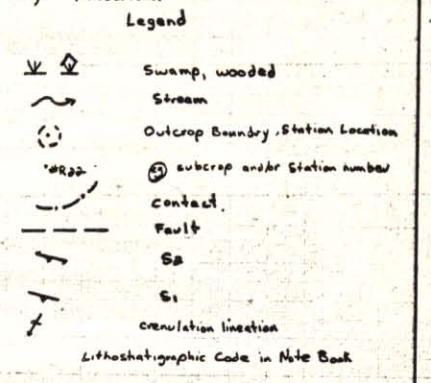 Legend
Swamp, wooded
Stream
Outcrop Boundry, Station Location
#R22 subcrop and/or Station number
contact.
Fault
S2
S1
crenulation lineation
Lithostratigraphic Code in Note Book